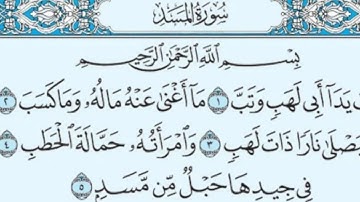 سُورَةُ المَسَدِ
بِسْمِ اللَّهِ الرَّحْمَٰنِ الرَّحِيمِ
يَدَآ أَبِى لَهَبٍ وَتَبَّ ١ مَآ أَغْنَىٰ عَنْهُ مَالُهُۥ وَمَا كَسَبَ ٢
نَارًا ذَاتَ لَهَبٍ ٣ وَٱمْرَأَتُهُۥ حَمَّالَةَ ٱلْحَطَبِ ٤
فِى جِيدِهَا حَبْلٌ مِّن مَّسَدٍۭ ٥